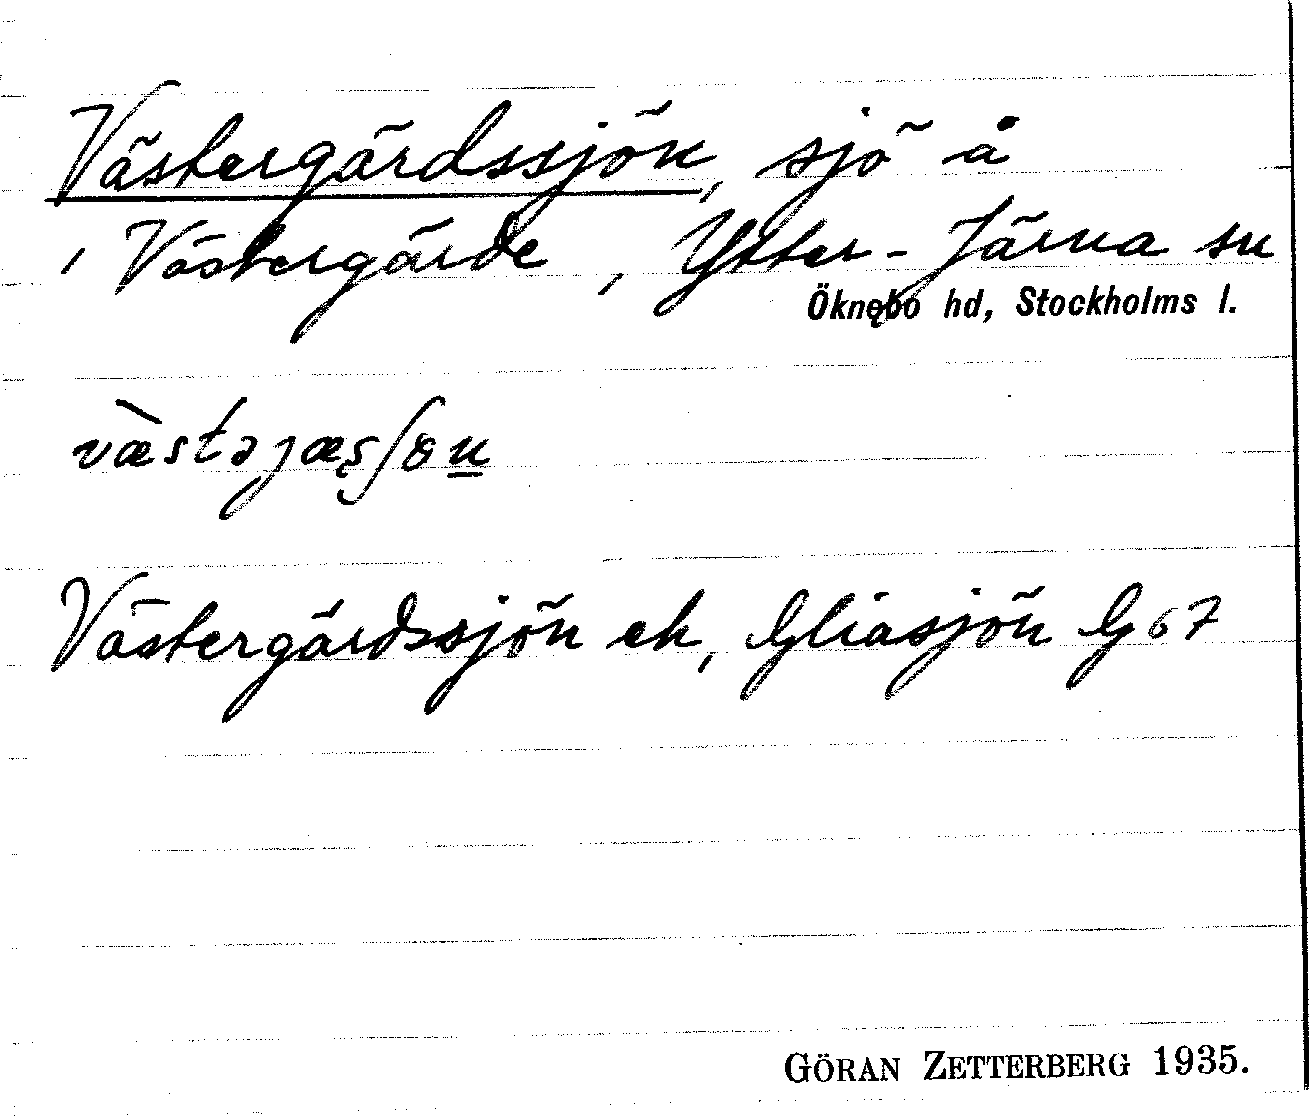 Västergärdssjön, sjö å
, Västergärde, Ytter-Järna sn
Öknebo hd, Stockholms l.
væ̀stəjæʂʃɵn
Västergärdssjön ek, Gliasjön G 67
GÖRAN ZETTERBERG 1935.